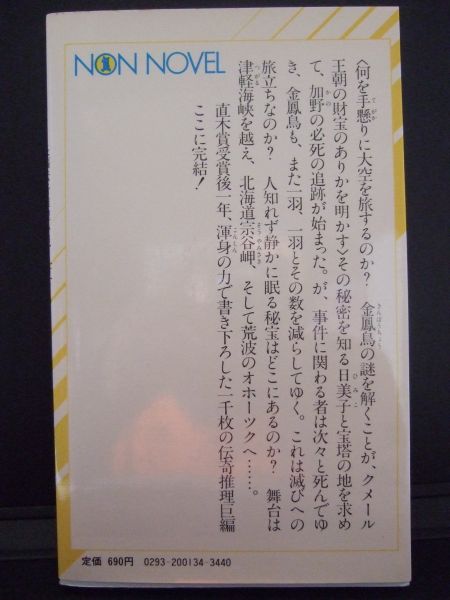 NON NOVEL
〈何を手懸りに大空を旅するのか？　金鳳鳥の謎を解くことが、クメール
王朝の財宝のありかを明かす〉その秘密を知る日美子と宝塔の地を求め
て、加野の必死の追跡が始まった。が、事件に関わる者は次々と死んでゆ
き、金鳳鳥も、また一羽、一羽とその数を減らしてゆく。これは滅びへの
旅立ちなのか？　人知れず静かに眠る秘宝はどこにあるのか？　舞台は
津軽海峡を越え、北海道宗谷岬、そして荒波のオホーツクへ……。
直木賞受賞後一年、渾身の力で書き下ろした一千枚の伝奇推理巨編
ここに完結！
定価 690円　0293-200134-3440